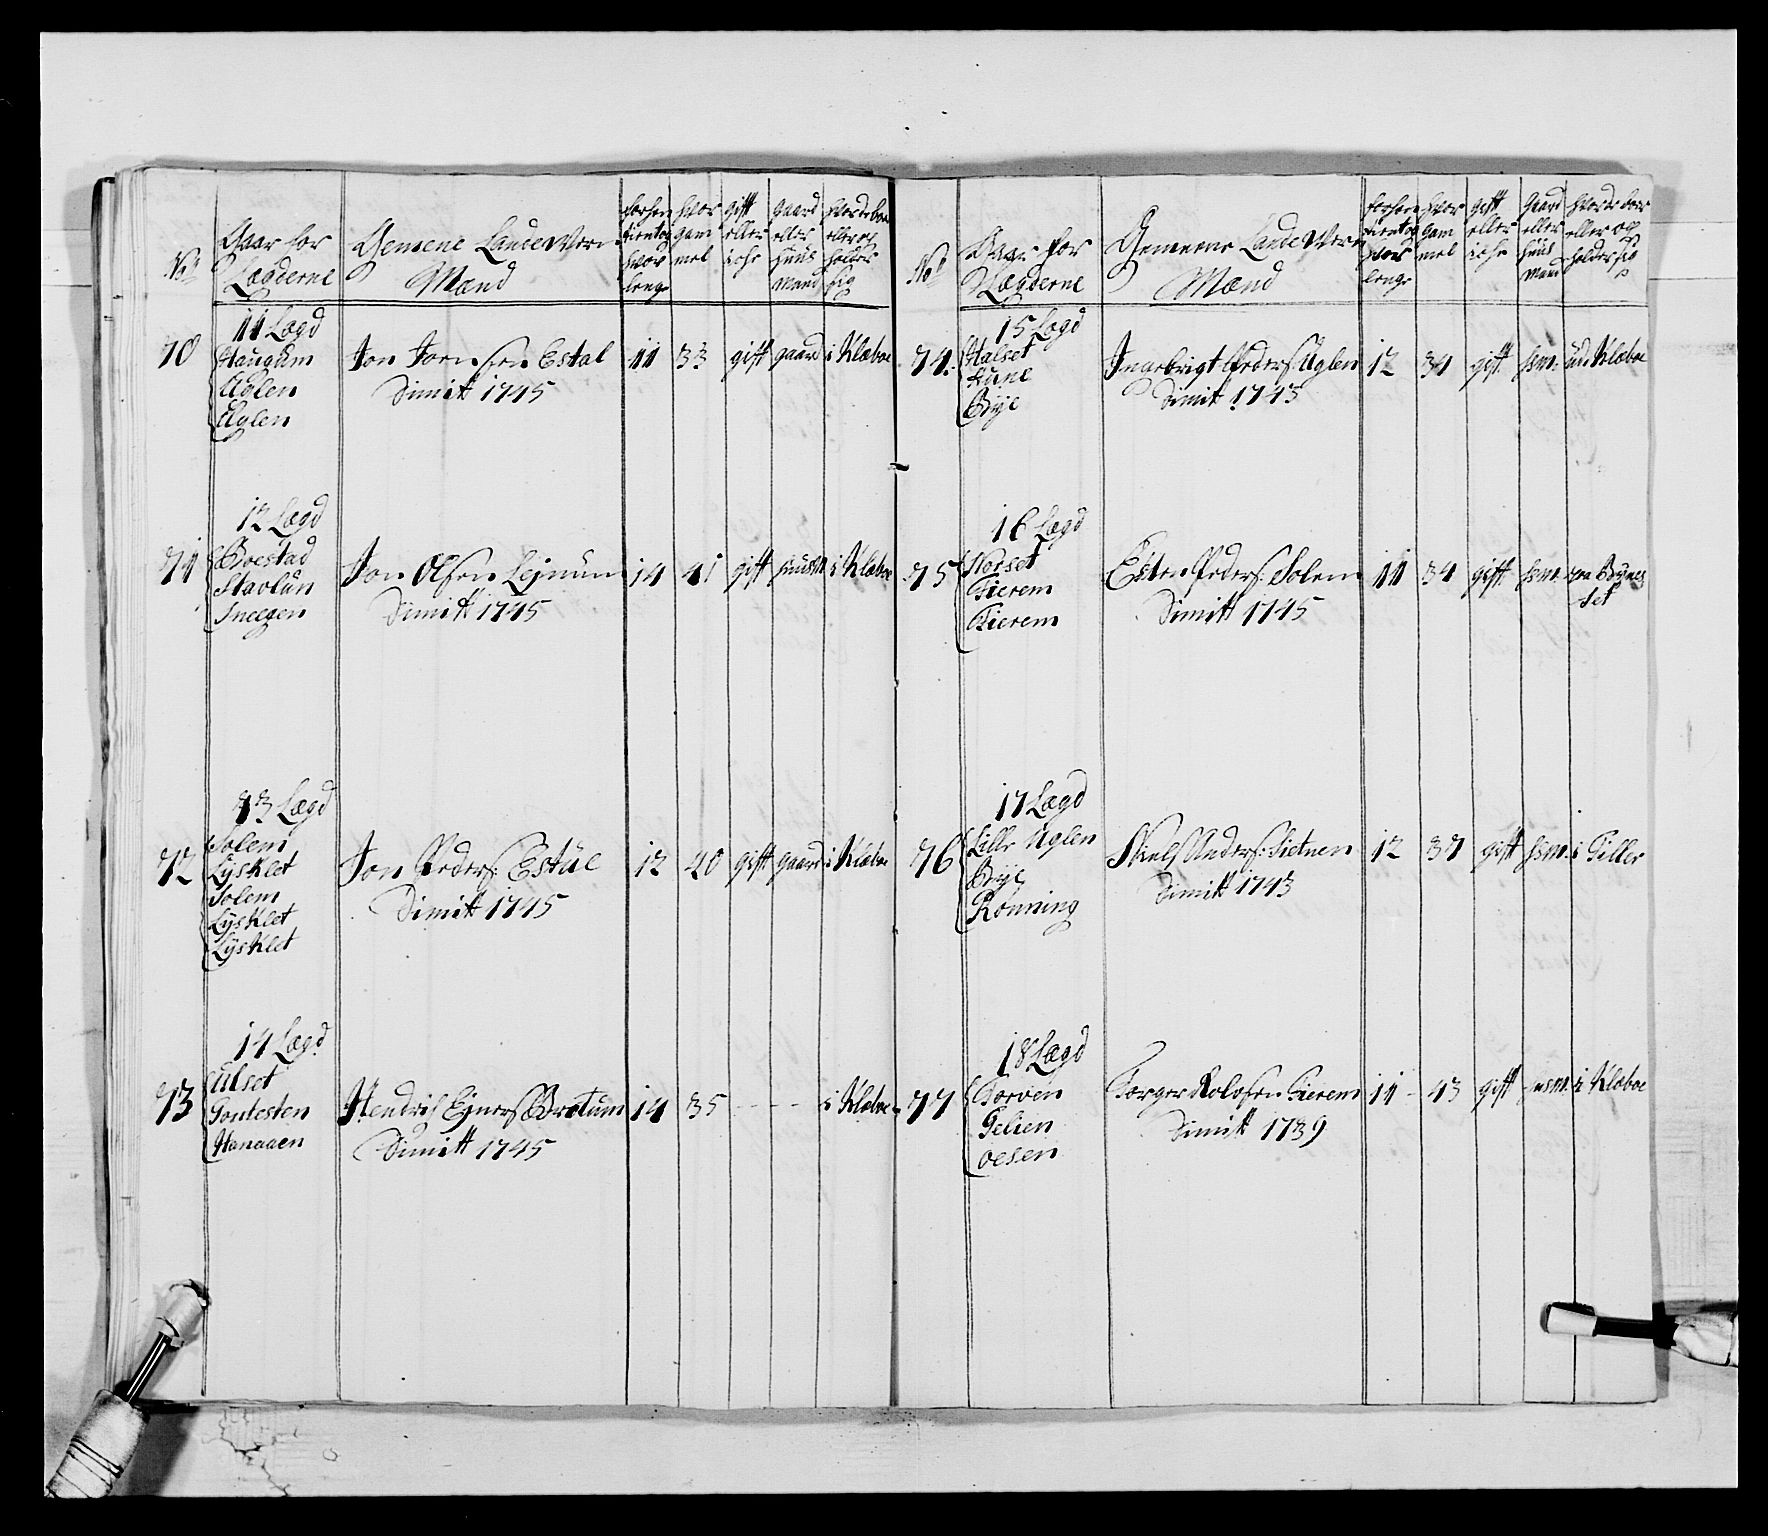 No
Gaar for
Lægderne
Gemene Lande Wern
Mænd
forhen
tient og
hvor
lenge
hvor
gam
mel
gift
eller
icke
gaard
eller
huus
mand
hvor de boer
eller op
holder
sig
70
11 Lægd
Haugum
Uglen
Uglen
Jon Joensen Estal
Dimitt 1745
11
33
gift
gaard
i Klæboe
71
12 Lægd
Boestad
Stavlun
Sneegen
Jon Olsen Lejnum
Dimitt 1745
14
41
gift
huusm
i Klæboe
72
13 Lægd
Solem
Lysklet
Solem
Lysklet
Lysklet
Jon Peders: Estúe
Dimitt 1745
12
40
gift
gaard
i Klæboe
73
14 Lægd
Ulset
Gontesten
Hanaaen
Hendrik Eyners: Brotum
Dimitt 1745
14
35
i Klæboe
No
Gaar for
Lægderne
Gemeene Lande Wern
Mænd
forhen
tient og
hvor
lenge
hvor
gam
mel
gift
eller
icke
gaard
eller
huus
mand
hvor de boer
eller op
holder sig
74
15 Lægd
Halset
Tune
Bye
Ingebrigt Peders: Uglen
Dimit 1743
12
34
gift
hsm:
ud i Klæboe
75
16 Lægd
Norset
Tierem
Tierem
Esten Peders: Solem
Dimitt 1745
11
34
gift
hsm:
paa Bynes
set
76
17 Lægd
Lille Uglen
Bye
Rønning
Niels Anders: Sietnen
Dimitt 1743
12
37
gift
hsm:
i Tiller
77
18 Lægd
Torven
Telien
Oesen
Torger Rolofsen Tierem
Dimitt 1739
11
43
gift
husm:
i Klæboe